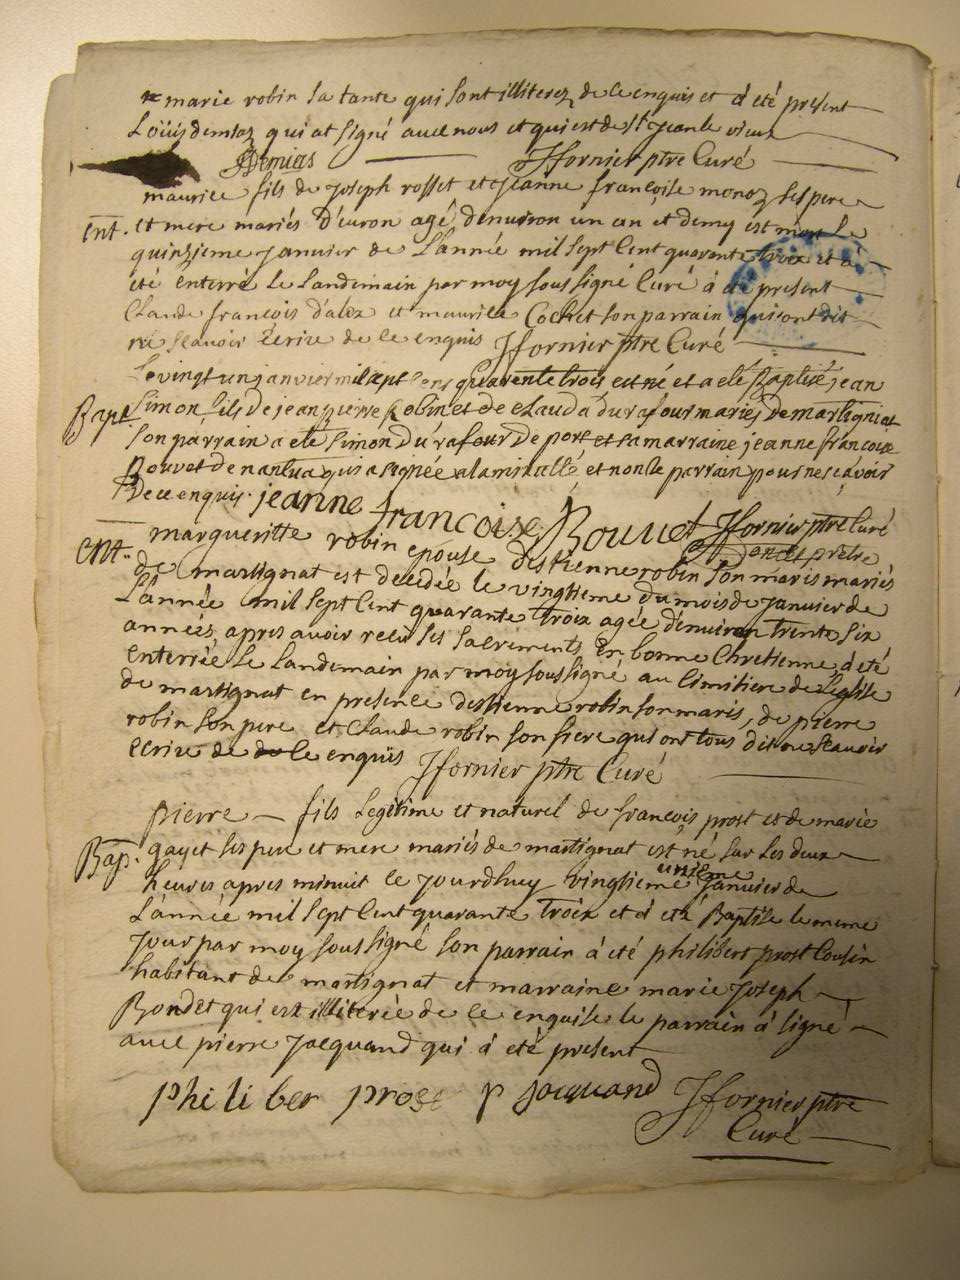 marie robin sa tante qui sont illiterez de ce enquis et à été present
Loüis demiaz qui at signé avec nous et qui est de st jean le vieux
Demias Jfornier ptre Curé
maurice fils de joseph rosset et jeanne françoise monoz ses pere
Ent. et mere mariés d'euron agé d'enuiron un an et demy est mort le
quinzieme januier de L'année mil sept Cent quarante trois et à
été enterré le Landemain par moy sous signé Curé à été present
Claude françois d'aloz et maurice Cochet son parrain qui ont dit
ne sçauoir Ecrire de ce enquis Jfornier ptre Curé
Le vingt un janvier mil sept cens quarente trois est né et a eté Baptisé jean
Bapt Simon fils de jean pierre Robin et de clauda durafour mariés de martigniat
son parrain a eté simon du rafour de port et sa marraine jeanne françoise
Bouvet de nantua qui a signée a la minutte, et non le parrain pour ne sçavoir
De ce enquis. jeanne francoise Bouuet Jfornier ptre Curé
Ent. margueritte robin epouse d'estienne robin son maris mariés
de martignat est decedée le vingtieme du mois de januier de
L'année mil sept Cent quarante trois agée d'enuiron trente six
années, apres auoir receu ses sacrements En bonne Chretienne à été
enterrée le Landemain par moy sous signé au Cimitiere de L'eglise
de martignat en presence d'estienne robin son maris, de pierre
robin son pere et Claude robin son frere qui ont tous dit ne sçauoir
ecrire de ce enquis Jfornier ptre Curé
pierre fils Legitime et naturel de françois prost et de marie
Bap. gayet ses pere et mere mariés de martignat est né sur les deux
heures apres minuit le jourdhuy vingtieme unieme januier de
L'année mil sept Cent quarante trois et à eté Baptisé le meme
jour par moy sous signé son parrain à été philibert prost Cousin
habitant de martignat et marraine marie joseph
Bondet qui est illiterée de ce enquise le parrain à signé
auec pierre jacquand qui à été present
philiber prost p jacquand Jfornier ptre
Curé